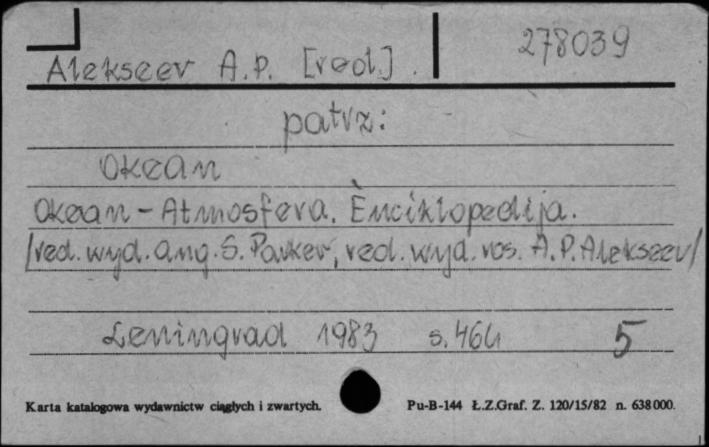 Alekseev A.P. [red.]. 278039
patrz:
Okean
Okean - Atmosfera. Ènciklopedija.
/red. wyd. ang. S. Parker, red. wyd. ros. A.P. Alekseev/
Leningrad 1983 s. 464 5
Karta katalogowa wydawnictw ciągłych i zwartych. Pu-B-144 Ł.Z.Graf. Z. 120/15/82 n. 638000.